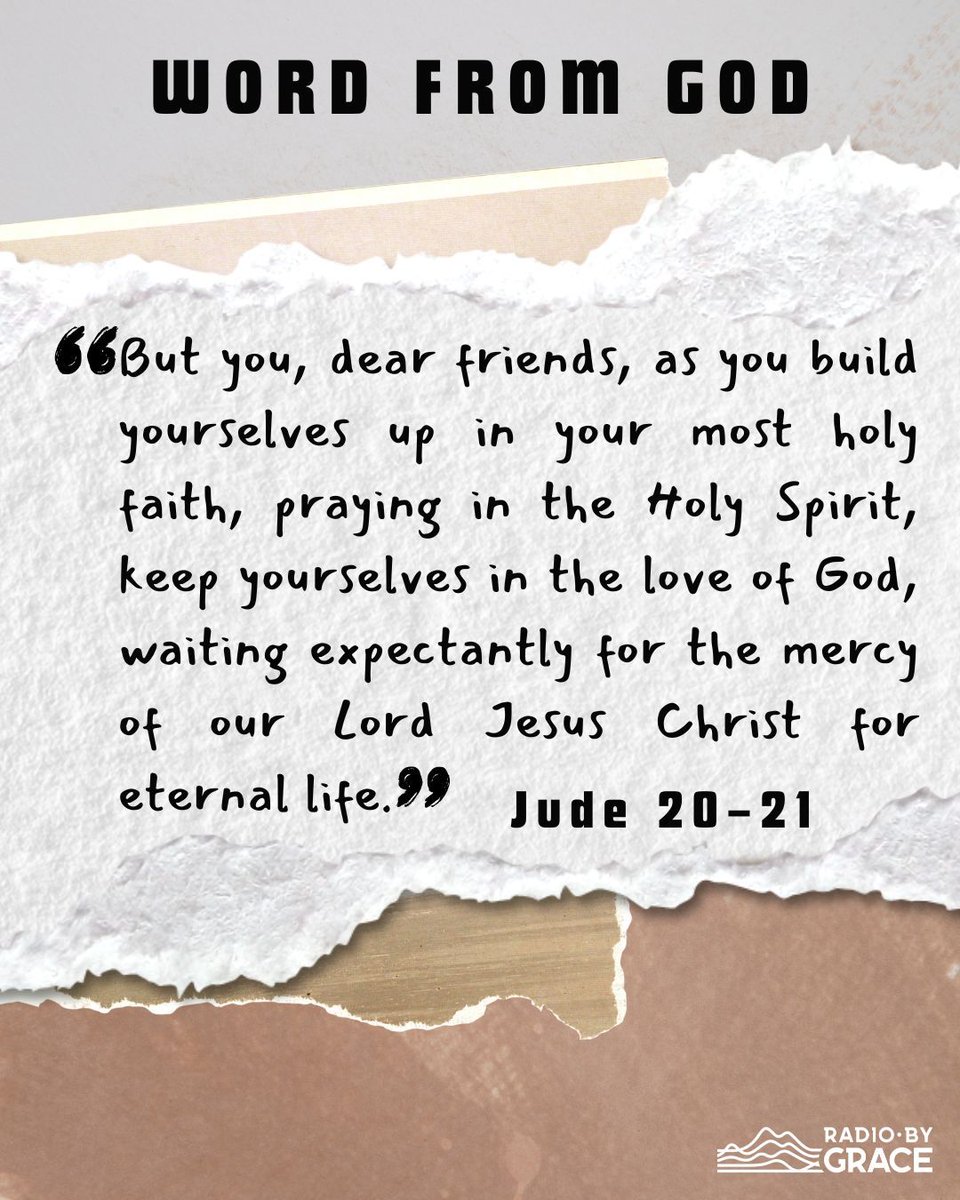 WORD FROM GOD
“But you, dear friends, as you build
yourselves up in your most holy
faith, praying in the Holy Spirit,
keep yourselves in the love of God,
waiting expectantly for the mercy
of our Lord Jesus Christ for
eternal life.”
Jude 20-21
RADIO·BY
GRACE